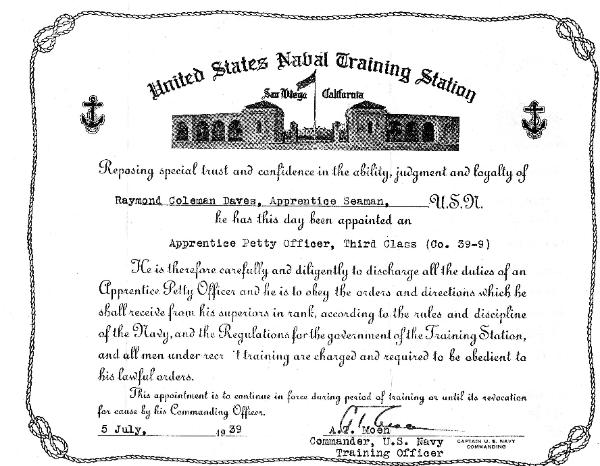 United States Naval Training Station
San Diego California
Reposing special trust and confidence in the ability, judgment and loyalty of
Raymond Coleman Daves, Apprentice Seaman, U.S.N.
he has this day been appointed an
Apprentice Petty Officer, Third Class (Co. 39-9)
He is therefore carefully and diligently to discharge all the duties of an
Apprentice Petty Officer and he is to obey the orders and directions which he
shall receive from his superiors in rank, according to the rules and discipline
of the Navy, and the Regulations for the government of the Training Station,
and all men under recr 't training are charged and required to be obedient to
his lawful orders.
This appointment is to continue in force during period of training or until its revocation
for cause by his Commanding Officer.
5 July, 1939
A.T. Moen
Commander, U.S. Navy
Training Officer
CAPTAIN U. S. NAVY
COMMANDING